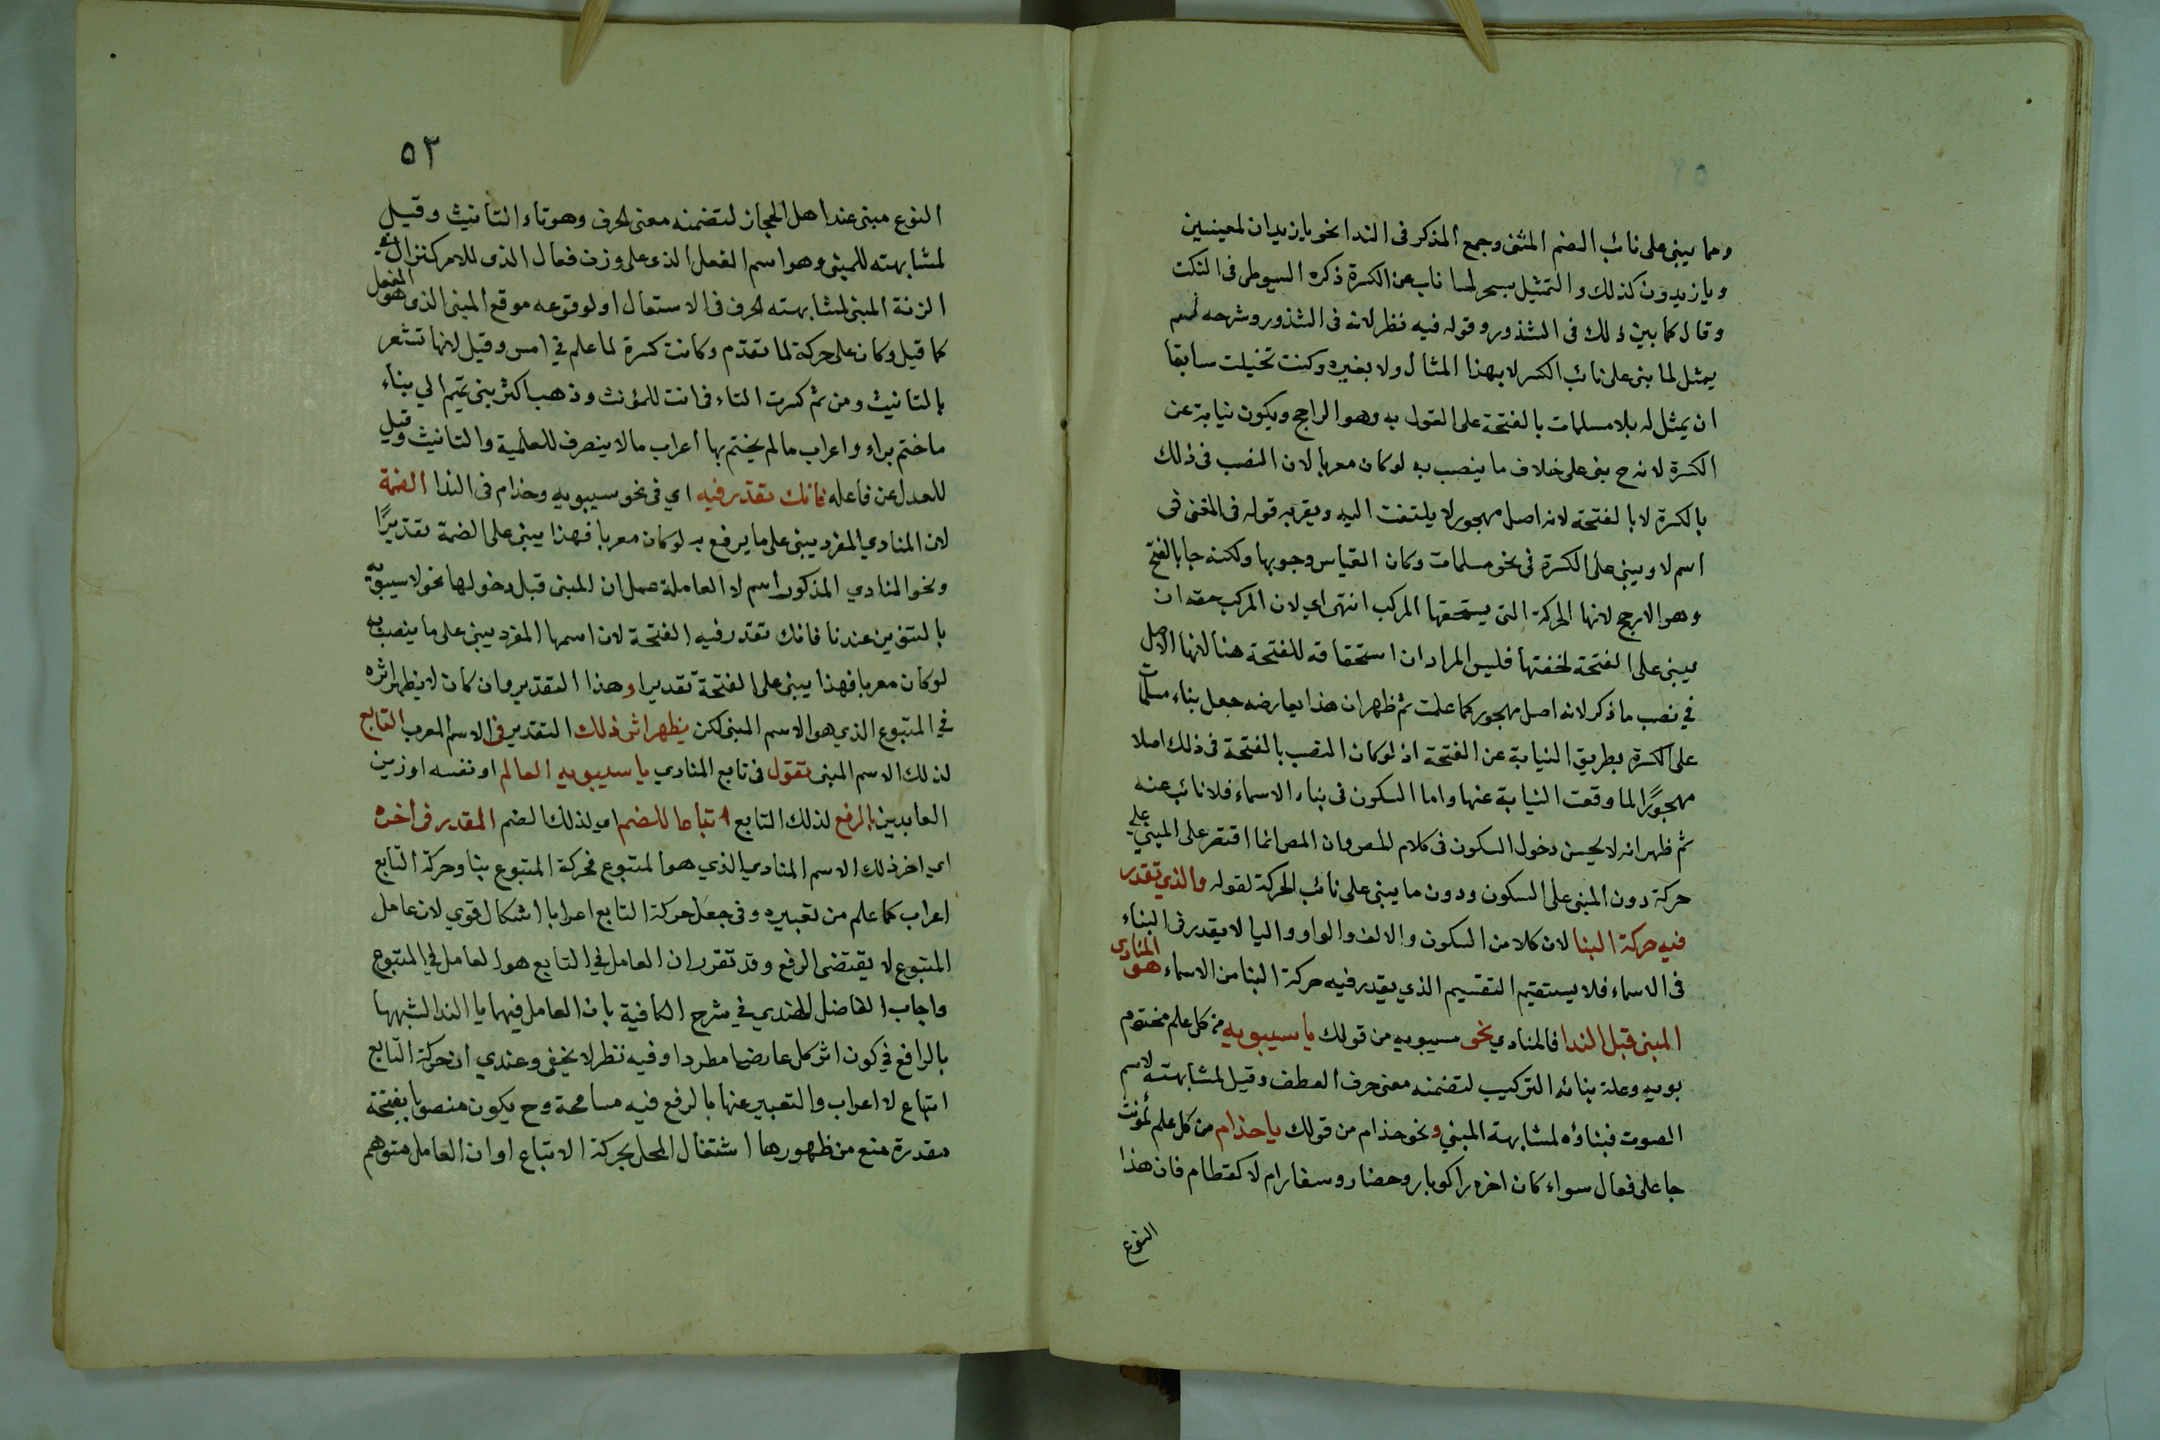 ومما يبنى على نائب الضم المثنى وجمع المذكر فى الندا نحو يازيدان لمعينين
ويازيدون كذلك والتمثيل بسحر لما ناب عن الكسرة ذكره السيوطى فى النكت
وقال كما بين ذلك فى الشذور وقوله فيه نظر لانه فى الشذور وشرحه لم
يمثل لما بنى على نائب الكسر لا بهذا المثال ولا بغيره وكنت تخيلت سابقا
ان يمثل له بلا مسلمات بالفتحة على القول به وهو الراجح ويكون نيابة عن
الكسرة لانه ح بنى على خلاف ما ينصب به لو كان معربا لان النصب فى ذلك
بالكسرة لا بالفتحة لانه اصل مهجور لا يلتفت اليه ويقربه قوله فى المغنى فى
اسم لا ويبنى على الكسرة فى نحو مسلمات وكان القياس وجوبها ولكنه جا بالفتح
وهو الارجح لانها الحركة التى يستحقها المركب انتهى اي لان المركب حقه ان
يبنى على الفتحة لخفتها فليس المراد ان استحقاقه للفتحة هنا لانها الاصل
في نصب ما ذكر لانه اصل مهجور كما علمت ثم ظهر ان هذا يعارضه جعل بناء مسلمات
على الكسرة بطريق النيابة عن الفتحة اذ لو كان النصب بالفتحة فى ذلك اصلا
مهجورًا لما وقعت النيابة عنها واما السكون فى بناء الاسماء فلا نائب عنه
ثم ظهر انه لا يحسن دخول السكون فى كلام المص وان المص انما اقتصر على المبني على
حركة دون المبنى على السكون ودون ما يبنى على نائب الحركة لقوله والذي تقدر
فيه حركة البنا لان كلا من السكون والالف والواو واليا لا يقدر فى البناء
فى الاسماء فلا يستقيم التقسيم الذي يقدر فيه حركة البنا من الاسماء هو المنادى
المبنى قبل الندا فالمنادي نحو سيبويه من قولك يا سيبويه من كل علم مختوم
بويه وعلة بنائه التركيب لتضمنه معنى حرف العطف وقيل لمشابهته لاسم
الصوت فبناؤه لمشابهة المبني ونحو حذام من قولك يا حذام من كل علم لمؤنث
جا على فعال سواء كان اخره را كوبار وحضار وسفار ام لا كقطام فان هذا
النوع
٥٣
النوع مبنى عند اهل الحجاز لتضمنه معنى الحرف وهو تاء التانيث وقيل
لمشابهته للمبنى وهو اسم الفعل الذى على وزن فعال الذى للامر كنزال في
الزنة المبنى لمشابهته الحرف فى الاستعمال او لوقوعه موقع المبنى الذى هو الفعل
كما قيل وكان على حركة لما تقدم وكانت كسرة لما علم في امس وقيل لانها تشعر
بالتانيث ومن ثم كسرت التاء فى انت للمؤنث وذهب اكثر بنى تميم الي بناء
ما ختم براء واعراب ما لم يختم بها اعراب ما لا ينصرف للعلمية والتانيث وقيل
للعدل عن فاعله فانك تقدر فيه اي فى نحو سيبويه وحذام فى الندا الضمة
لان المنادي المفرد يبنى على ما يرفع به لو كان معربا فهذا يبنى على الضمة تقديرًا
ونحو المنادي المذكور اسم لا العاملة عمل ان المبنى قبل دخولها نحو لا سيبويه
بالتنوين عندنا فانك تقدر فيه الفتحة لان اسمها المفرد يبنى على ما ينصب به
لو كان معربا فهذا يبنى على الفتحة تقديرا وهذا التقدير وان كان لا يظهر اثره
في المتبوع الذي هو الاسم المبنى لكن يظهر اثر ذلك التقدير فى الاسم المعرب التابع
لذلك الاسم المبنى تقول فى تابع المنادي يا سيبويه العالم او نفسه او زين
العابدين بالرفع لذلك التابع اتباعا للضم اي لذلك الضم المقدر فى اخره
اي اخر ذلك الاسم المنادي الذي هو المتبوع فحركة المتبوع بنا وحركة التابع
اعراب كما علم من تعبيره وفى جعل حركة التابع اعرابا اشكال قوي لان عامل
المتبوع لا يقتضى الرفع وقد تقرر ان العامل في التابع هو العامل في المتبوع
واجاب الفاضل الهندي في شرح الكافية بان العامل فيهما يا الندا لشبهها
بالرافع في كون اثر كل عارضا مطردا وفيه نظر لا يخفى وعندي ان حركة التابع
اتباع لا اعراب والتعبير عنها بالرفع فيه مسامحة وح يكون منصوبا بفتحة
مقدرة منع من ظهورها اشتغال المحل بحركة الاتباع او ان العامل متوهم